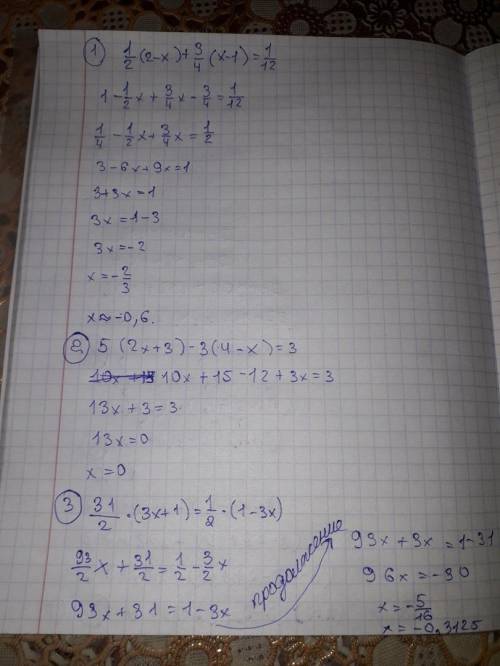 1) 1/2 · (2-x) + 3/4 (x-1) = 1/12
1 - 1/2x + 3/4x - 3/4 = 1/12
1/4 - 1/2x + 3/4x = 1/2
3-6x+9x=1
3+3x=1
3x=1-3
3x=-2
x=-2/3
x≈-0,6.
2) 5 (2x+3)-3(4-x)=3
10x+15-12+3x=3
13x+3=3
13x=0
x=0
3) 31/2 · (3x+1) = 1/2 · (1-3x)
93/2x + 31/2 = 1/2 - 3/2x
93x+31=1-3x
продолжение
93x+3x=1-31
96x=-30
x=-5/16
x=-0,3125